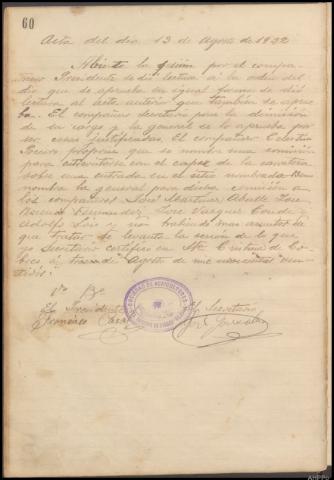 60
Acta del dia 13 de Agosto de 1922
Abierta la sesión por el compa-
ñero Presidente se dió lectura á la orden del
dia que se aprueba en igual forma se dió
lectura al acta anterior que tambien se aprue
ba. El compañero secretario pone la dimisión
de su cargo y la general se lo aprueba por
ser causas justificadas. El compañero
propone que se nombre una comisión
para entrevistarse con el capataz de la carretera
sobre una entrada en el sitio nombrado
nombra la general para dicha comisión a
los compañeros José Martinez Aballe José
Fernandez José Vazquez Conde y
Adolfo y no habiendo mas asuntos de
que tratar se levanta la sesión de lo que
yo Secretario certifico en Sta Cristina de Co-
bres á trece de Agosto de mil novecientos vein-
tidos.
Vº Bº
El Presidente El Secretario
Francisco José González
SOCIEDAD DE AGRICULTORES